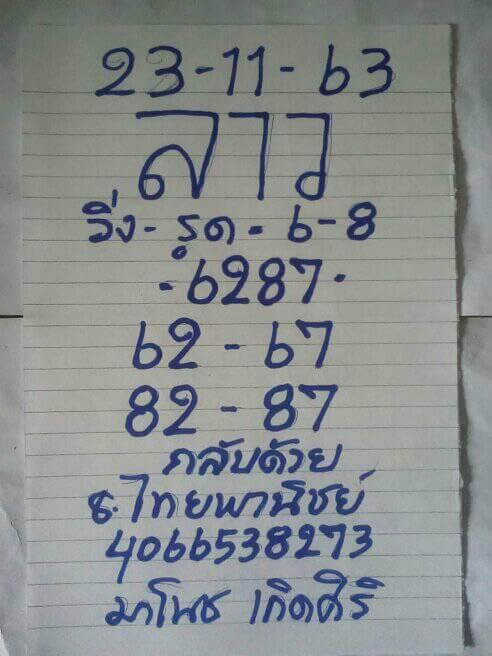 23-11-63
ลาว
วิ่ง - รูด - 6-8
- 6287 -
62 - 67
82 - 87
กลับด้วย
ธ. ไทยพานิชย์
4066538273
มาโนช เกิดศิริ